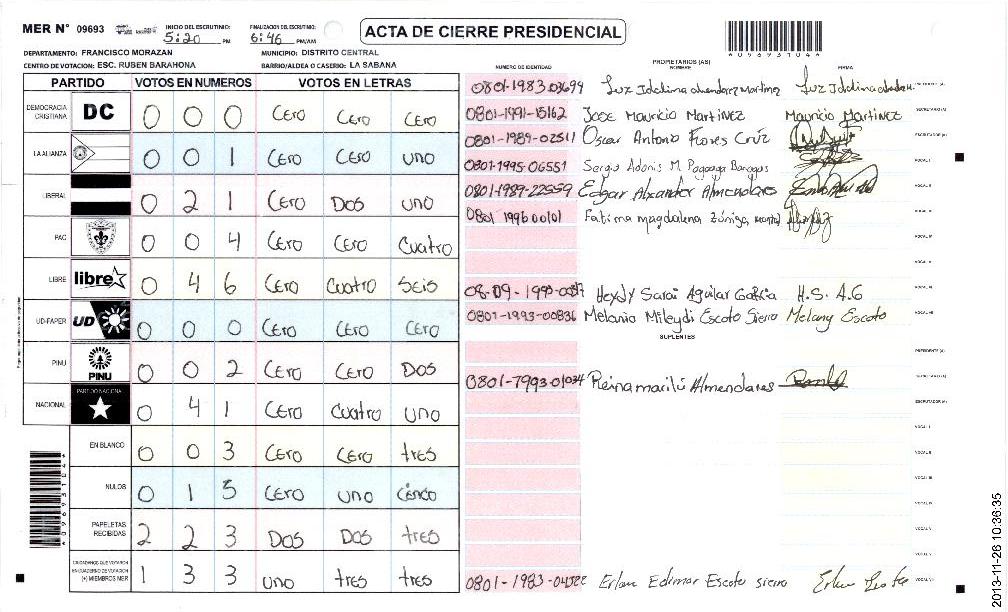 MER N° 09693 INICIO DEL ESCRUTINIO: 5:20 PM FINALIZACIÓN DEL ESCRUTINIO: 6:46 PM/AM
ACTA DE CIERRE PRESIDENCIAL
*09693104*
DEPARTAMENTO: FRANCISCO MORAZAN MUNICIPIO: DISTRITO CENTRAL
CENTRO DE VOTACION: ESC. RUBEN BARAHONA BARRIO/ALDEA O CASERIO: LA SABANA
PARTIDO VOTOS EN NUMEROS VOTOS EN LETRAS
DEMOCRACIA CRISTIANA DC 0 0 0 CERO CERO CERO
LA ALIANZA 0 0 1 CERO CERO UNO
LIBERAL 0 2 1 CERO DOS UNO
PAC 0 0 4 CERO CERO CUATRO
LIBRE libre 0 4 6 CERO CUATRO SEIS
UD-FAPER UD 0 0 0 CERO CERO CERO
PINU PINU 0 0 2 CERO CERO DOS
NACIONAL PARTIDO NACIONAL 0 4 1 CERO CUATRO UNO
EN BLANCO 0 0 3 CERO CERO tres
NULOS 0 1 5 CERO UNO cinco
PAPELETAS RECIBIDAS 2 2 3 DOS DOS tres
CIUDADANOS QUE VOTARON EN CUADERNO DE VOTACION (+) MIEMBROS MER 1 3 3 UNO tres tres
NUMERO DE IDENTIDAD PROPIETARIOS (AS) NOMBRE FIRMA
0801-1983 03699 Luz Idolina Martinez
0801-1991-15162 Jose Mauricio Martinez Mauricio Martinez
0801-1989-02511 Oscar Antonio Flores Cruz
0801-1995-06551 Sergio Adonis M.
0801-1987-22559 Edgar Alxander Almendares
0801 1996 00101 Fatima magdalena Zúniga
Heydy Sarai Aguilar H.S. A.G
0801-1993-00836 Melania Mileydi Escoto Sierra Melany Escoto
SUPLENTES
0801-7993-01034 Reina marilú Almendares
0801-1983-04522 Erlan Edimar Escoto sierra
*09693104*
2013-11-26 10:36:35